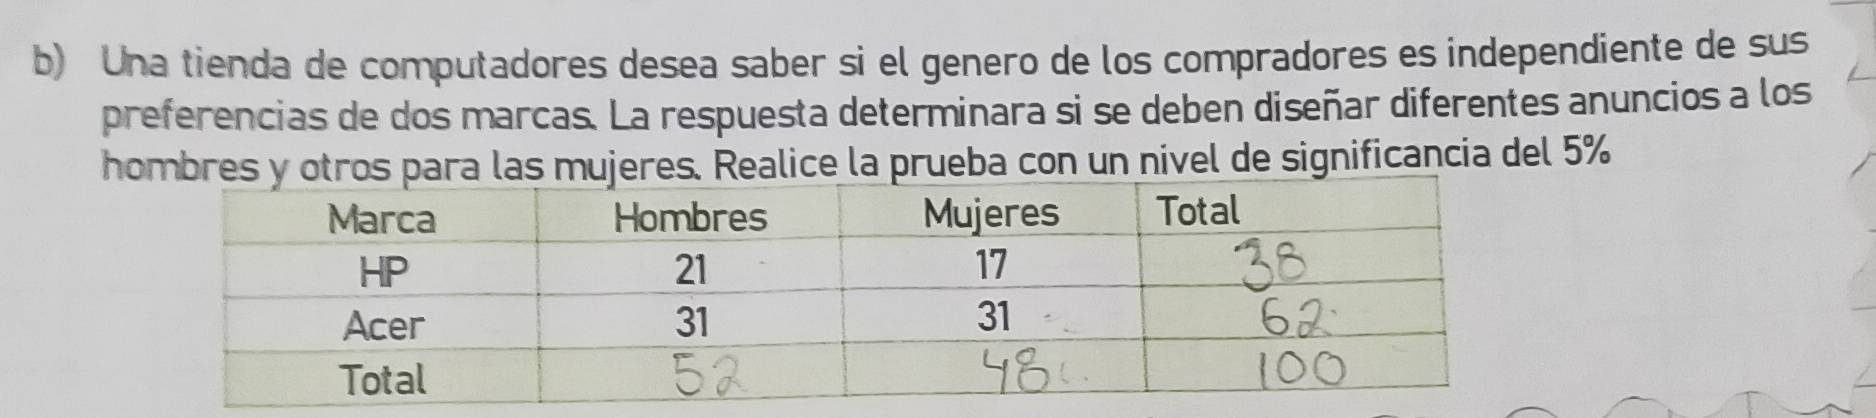 b) Una tienda de computadores desea saber si el genero de los compradores es independiente de sus
preferencias de dos marcas. La respuesta determinara si se deben diseñar diferentes anuncios a los
hombres y otros para las mujeres. Realice la prueba con un nivel de significancia del 5%
Marca Hombres Mujeres Total
HP 21 17 38
Acer 31 31 62
Total 52 48 100